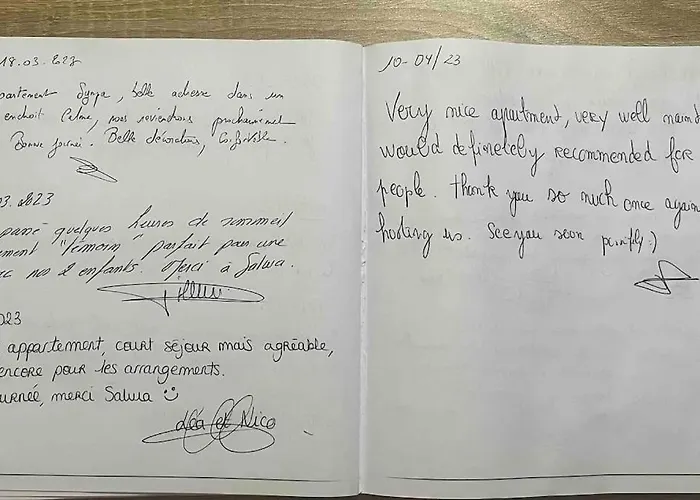 18.03.2023
partement Sympa, belle adresse dans un
endroit Calme, nous reviendrons prochainement
Bonne journée. Belle décoration, Confortable.
03.2023
passé quelques heures de sommeil
ement "témoin" parfait pour une
ec nos 2 enfants. Merci à Salwa.
023
appartement, court séjour mais agréable,
encore pour les arrangements.
ournée, merci Salwa ☺
Léa et Nico
10-04/23
Very nice apartment, very well maint
would definetely recommended for
people. Thank you so much once again
hosting us. See you soon :)